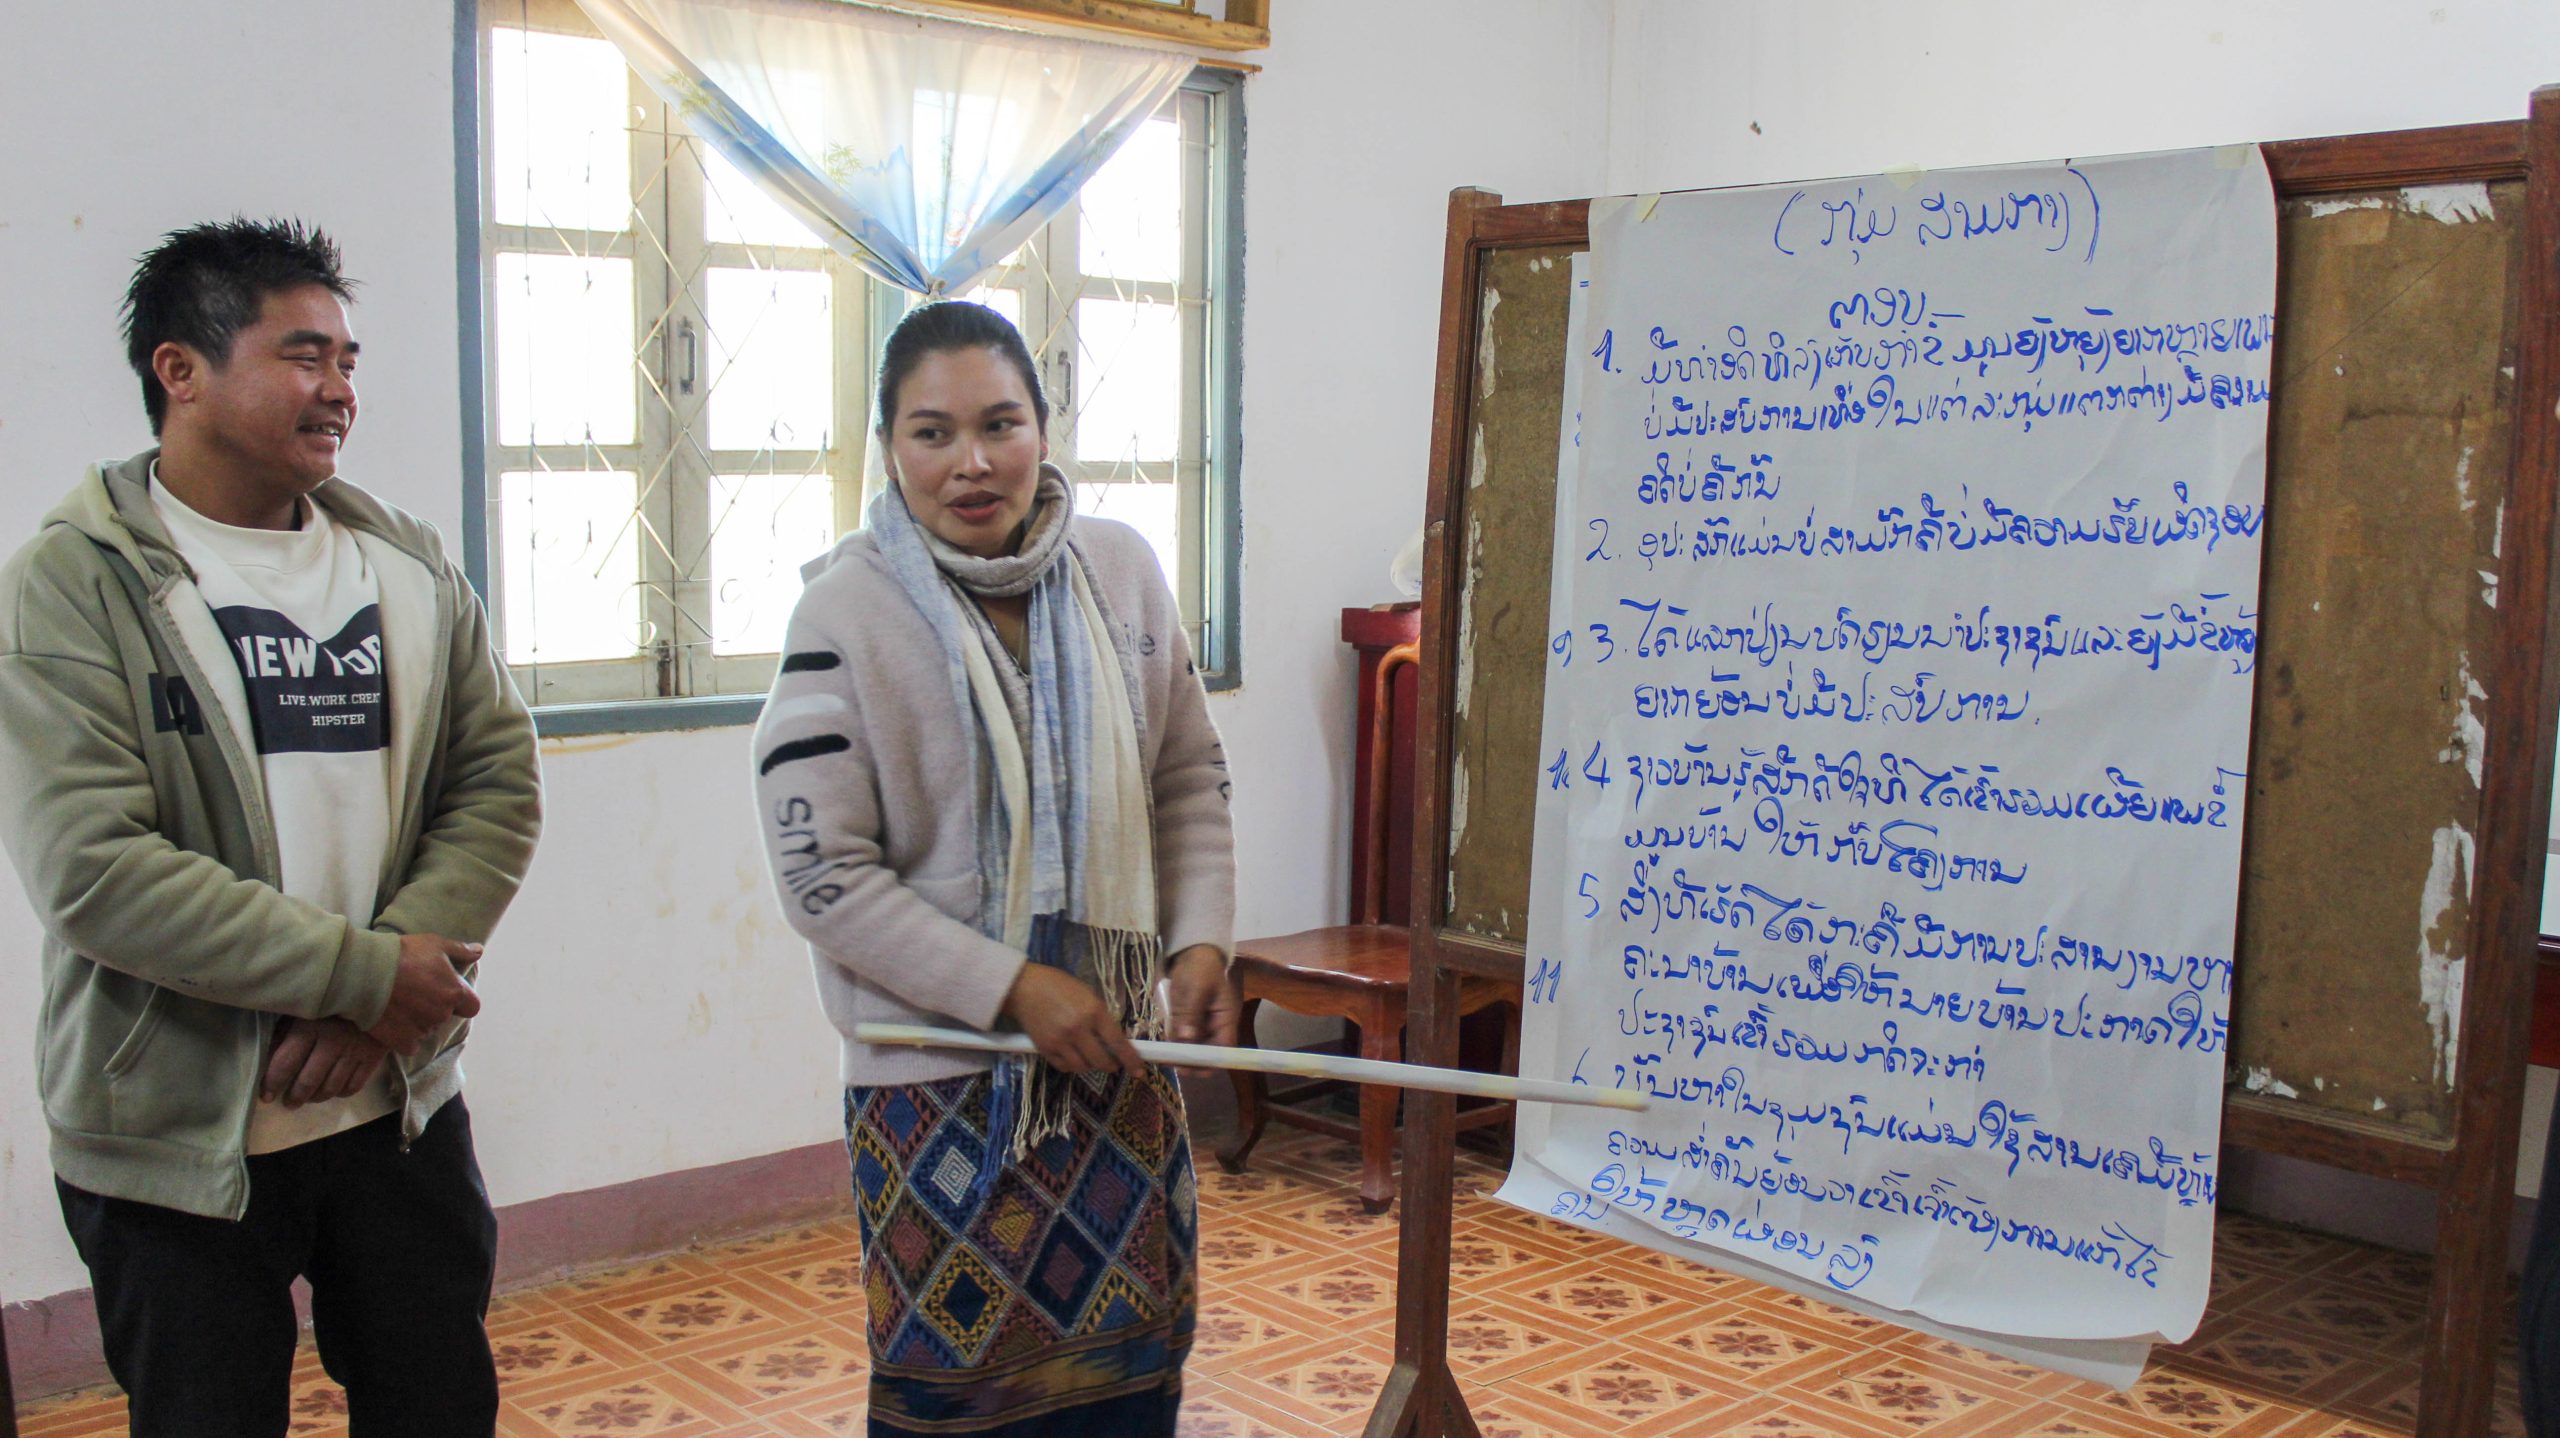 (ກຸ່ມ ສາມກາງ)
ຕອບ
1. ມີທ່າອິດທີ່ລົງເກັບກຳຂໍ້ມູນຍັງຫຍຸ້ງຍາກຫຼາຍເພາະ
ບໍ່ມີປະສົບການເທື່ອໃນແຕ່ລະກຸ່ມແຕກຕ່າງມີຄວາມ
ຄິດບໍ່ຄືກັນ
2. ອຸປະສັກແມ່ນບໍ່ສາມັກຄີບໍ່ມີຄວາມຮັບຜິດຊອບ
3. ໄດ້ແລກປ່ຽນບົດຮຽນນຳປະຊາຊົນແລະຍັງມີຂໍ້ຫຍຸ້ງ
ຍາກຍ້ອນບໍ່ມີປະສົບການ.
4 ຊາວບ້ານຮູ້ສຶກດີໃຈທີ່ໄດ້ເຂົ້າຮ່ວມເຜີຍແພ່ຂໍ້
ມູນບ້ານໃຫ້ກັບໂຄງການ
5 ສິ່ງທີ່ເຮັດໄດ້ງາຍຄືມີການປະສານງານຫາ
ຄະນະບ້ານເພື່ອໃຫ້ນາຍບ້ານປະກາດໃຫ້
ປະຊາຊົນເຂົ້າຮ່ວມກິດຈະກຳ
6 ບັນຫາໃນຊຸມຊົນແມ່ນໃຊ້ສານເຄມີຫຼາຍ
ຄວາມສຳຄັນຍ້ອນວ່າເຂົາເຈົ້າຕ້ອງການແກ້ໄຂ
ຄືນໃຫ້ຫຼຸດຜ່ອນລົງ
11
NEW YOR
LIVE.WORK.CREA
HIPSTER
smile